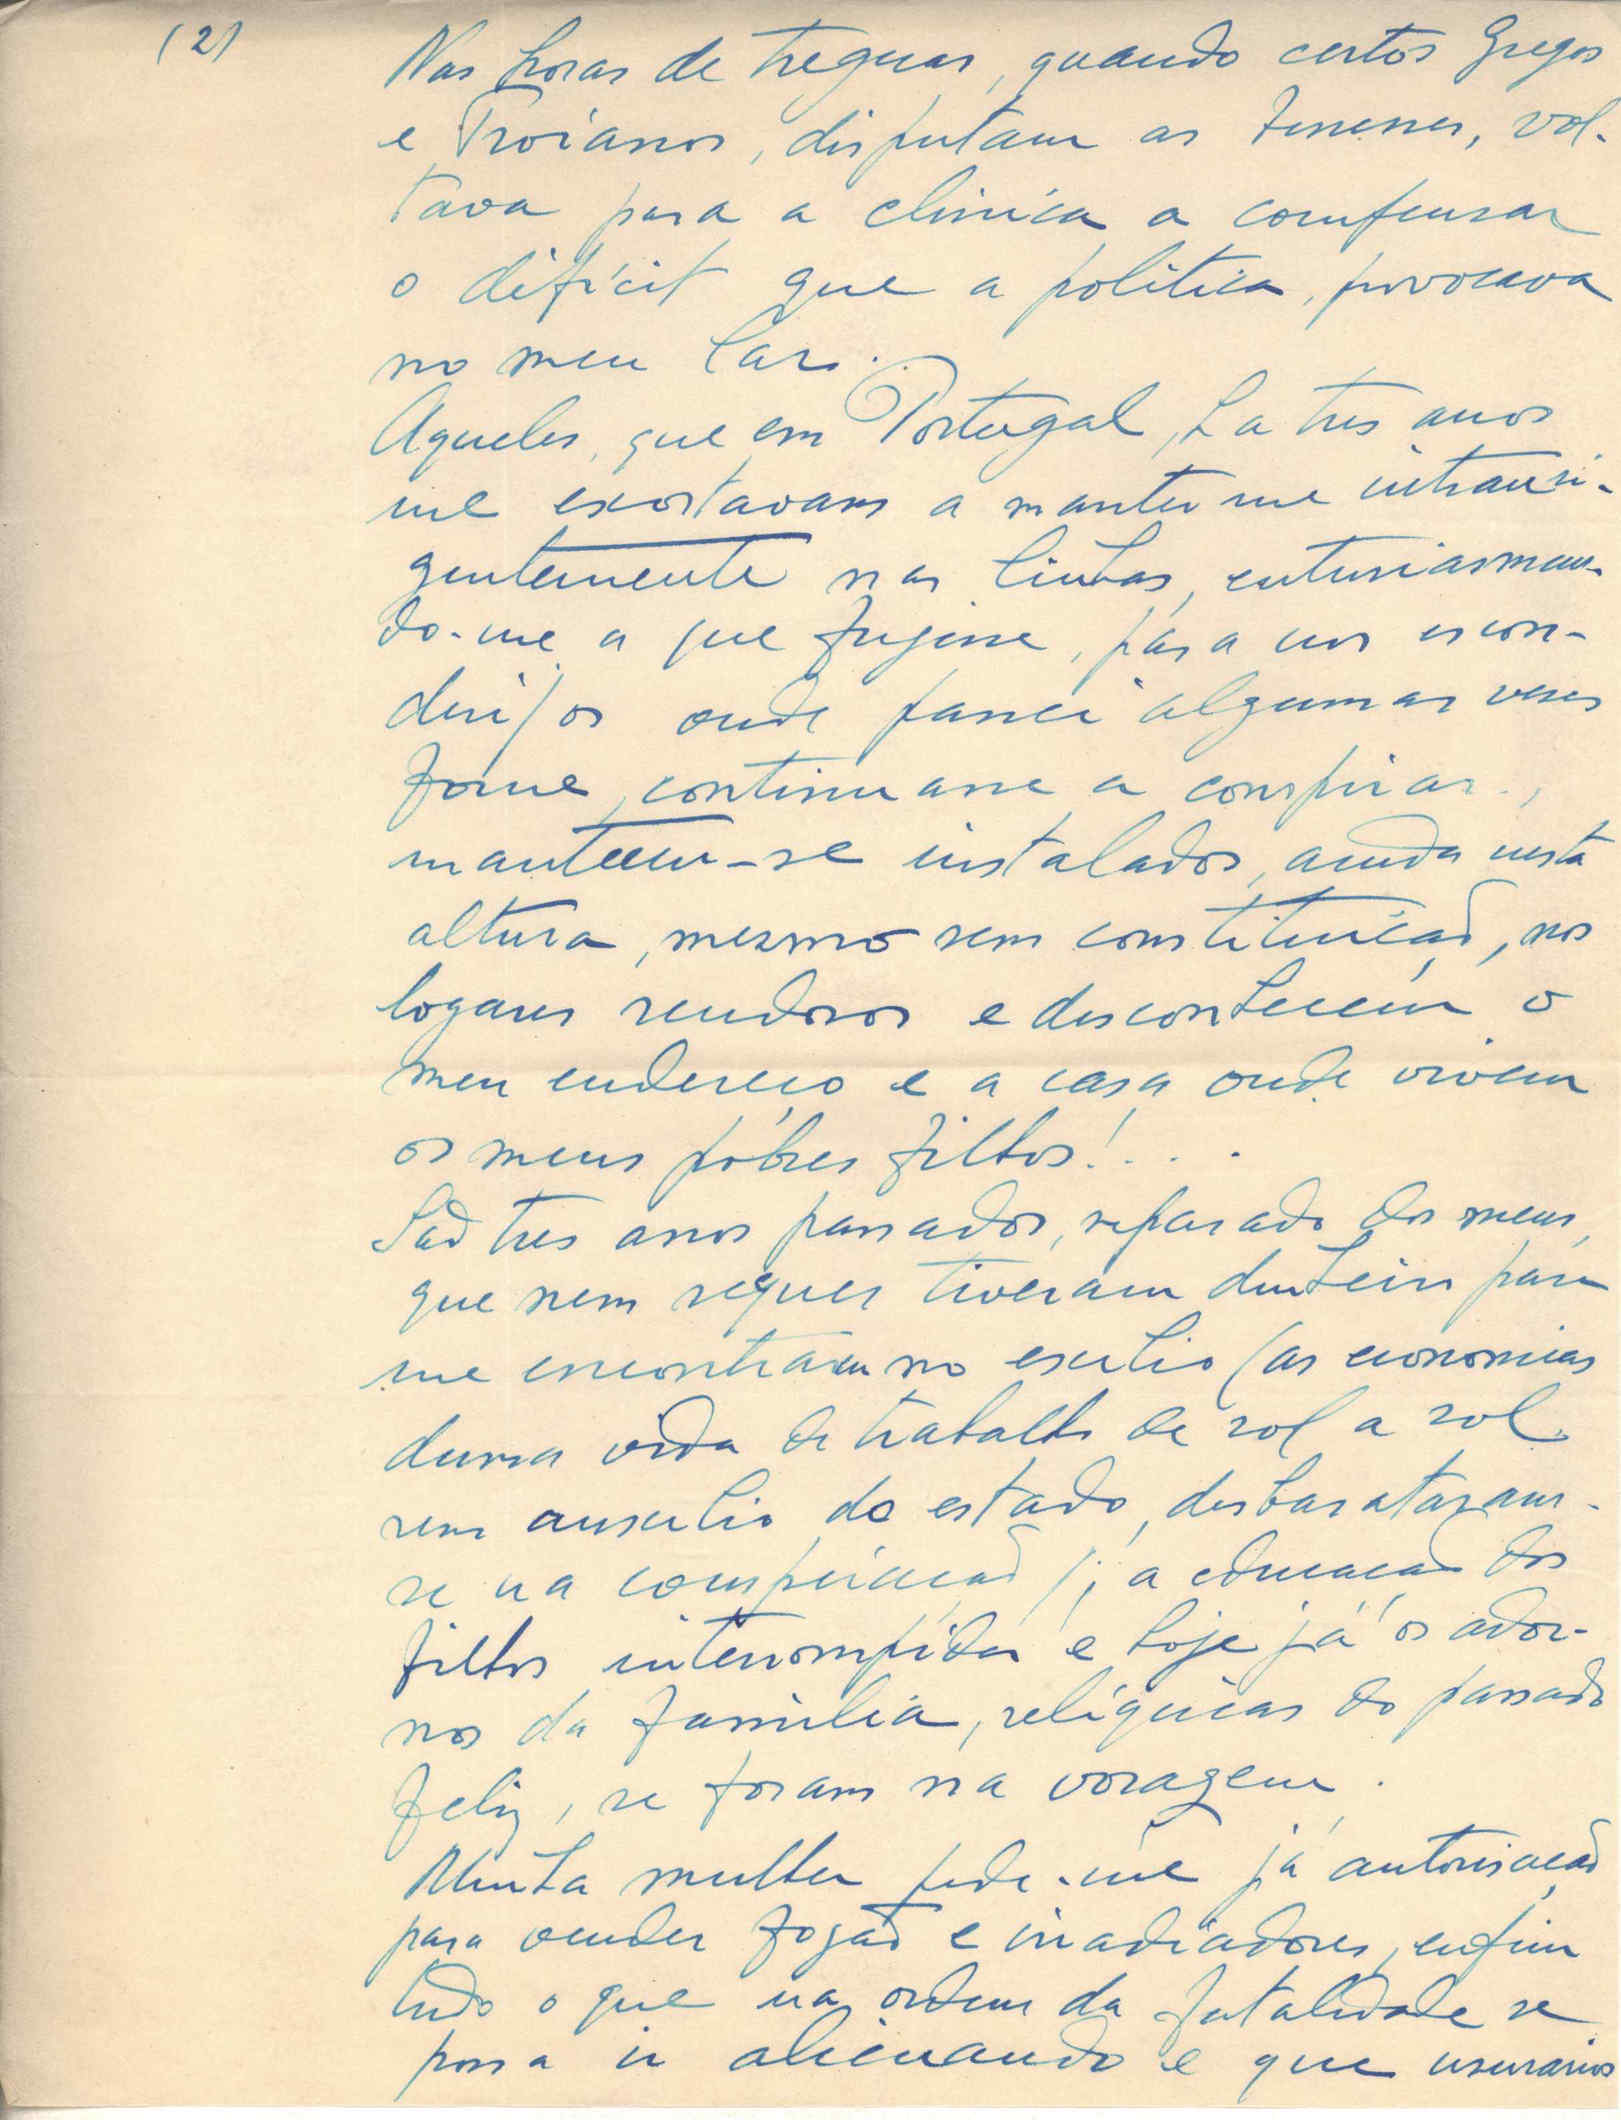 (2)
Nas horas de treguas, quando certos Gregos
e Troianos, disputam as benesses, vol-
tava para a clinica a compensar
o dificit que a politica, provocava
no meu lar.
Aqueles, que em Portugal, ha tres anos
me exortavam a manter me intransi-
gentemente nas linhas, entusiasman-
do-me a que fugisse, para uns escon-
derijos onde passei algumas veses
fome, continuasse a conspirar.,
manteem-se instalados, ainda nesta
altura, mesmo sem constituição, nos
logares rendosos e desconhecem o
meu endereço e a casa onde vivem
os meus póbres filhos!...
São tres anos passados, separado dos meus,
que nem sequer tiveram dinheiro para
me encontrarem no exilio (as economias
duma vida de trabalho de sol a sol
sem auxilio do estado, desbarataram-
se na conspiração); a educação dos
filhos interrompida e hoje já os ador-
nos da familia, reliquias do passado
feliz, se foram na voragem.
Minha mulher pede-me já autorisação
para vender fogão e irradiadores, enfim
tudo o que na ordem da fatalidade se
possa ir alienando e que usurarios